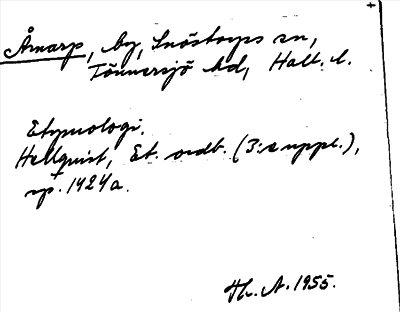 Årnarp, by, Snöstorps sn,
Tönnersjö hd, Hall. l.
Etymologi.
Hellquist, Et. ordb. (3:e uppl.),
sp. 1424a.
Th. A. 1955.